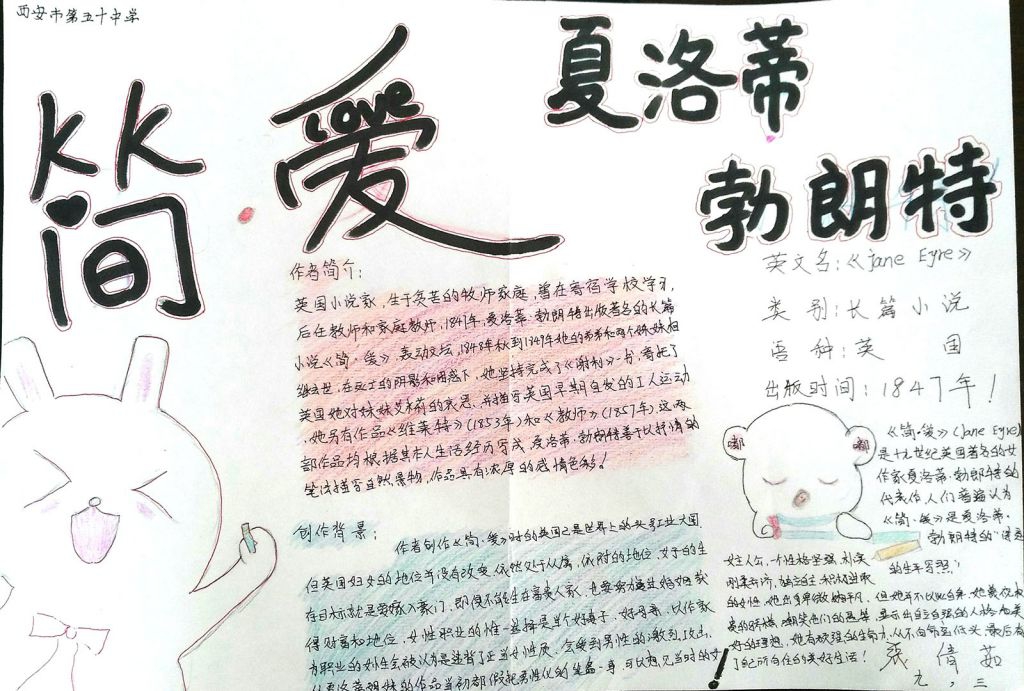 西安市第五十中学
简爱
Love
夏洛蒂
勃朗特
英文名:《jane Eyre》
类别:长篇小说
语种:英国
出版时间:1847年!
作者简介:
英国小说家,生于贫苦的牧师家庭,曾在寄宿学校学习,
后任教师和家庭教师,1847年,夏洛蒂·勃朗特出版著名的长篇
小说《简·爱》轰动文坛,1848年秋到1849年她的弟弟和两个妹妹相
继去世,在死亡的阴影和困惑下,她坚持完成了《谢利》一书,寄托了
英国她对妹妹艾米莉的哀思,并描写英国早期自发的工人运动
,她另有作品《维莱特》(1853年)和《教师》(1857年),这两
部作品均根据其本人生活经历写成,夏洛蒂·勃朗特善于以抒情的
笔法描写自然景物,作品具有浓厚的感情色彩!
创作背景:
作者创作《简·爱》时的英国已是世界上的头号工业大国,
但英国妇女的地位并没有改变,依然处于从属,依附的地位,女子的生
存目标就是要嫁入豪门,即便不能生在富贵人家,也要努力通过婚姻获
得财富和地位,女性职业的惟一选择是当个好妻子,好母亲,以作家
为职业的女性会被认为是违背了正当女性气质,会受到男性的激烈攻击,
夏洛蒂姐妹的作品当初都假托男性化的笔名一事,可以想见当时的女
《简·爱》(jane Eyre)
是十九世纪英国著名的女
作家夏洛蒂·勃朗特的
代表作,人们普遍认为
《简·爱》是夏洛蒂·
勃朗特的“诗意
的生平写照!
女主人公,一个性格坚强,朴实
刚柔并济,独立自主,积极进取
的女性,她出身卑微,相貌平凡,但她并不以此自卑,她蔑视权
贵的骄横,嘲笑他们的愚笨,显示出自立自强的人格和美
好的理想,她有顽强的生命力,从不向命运低头,最后有
了自己所向往的美好生活!
张倩茹
九,三
嘟
嘟